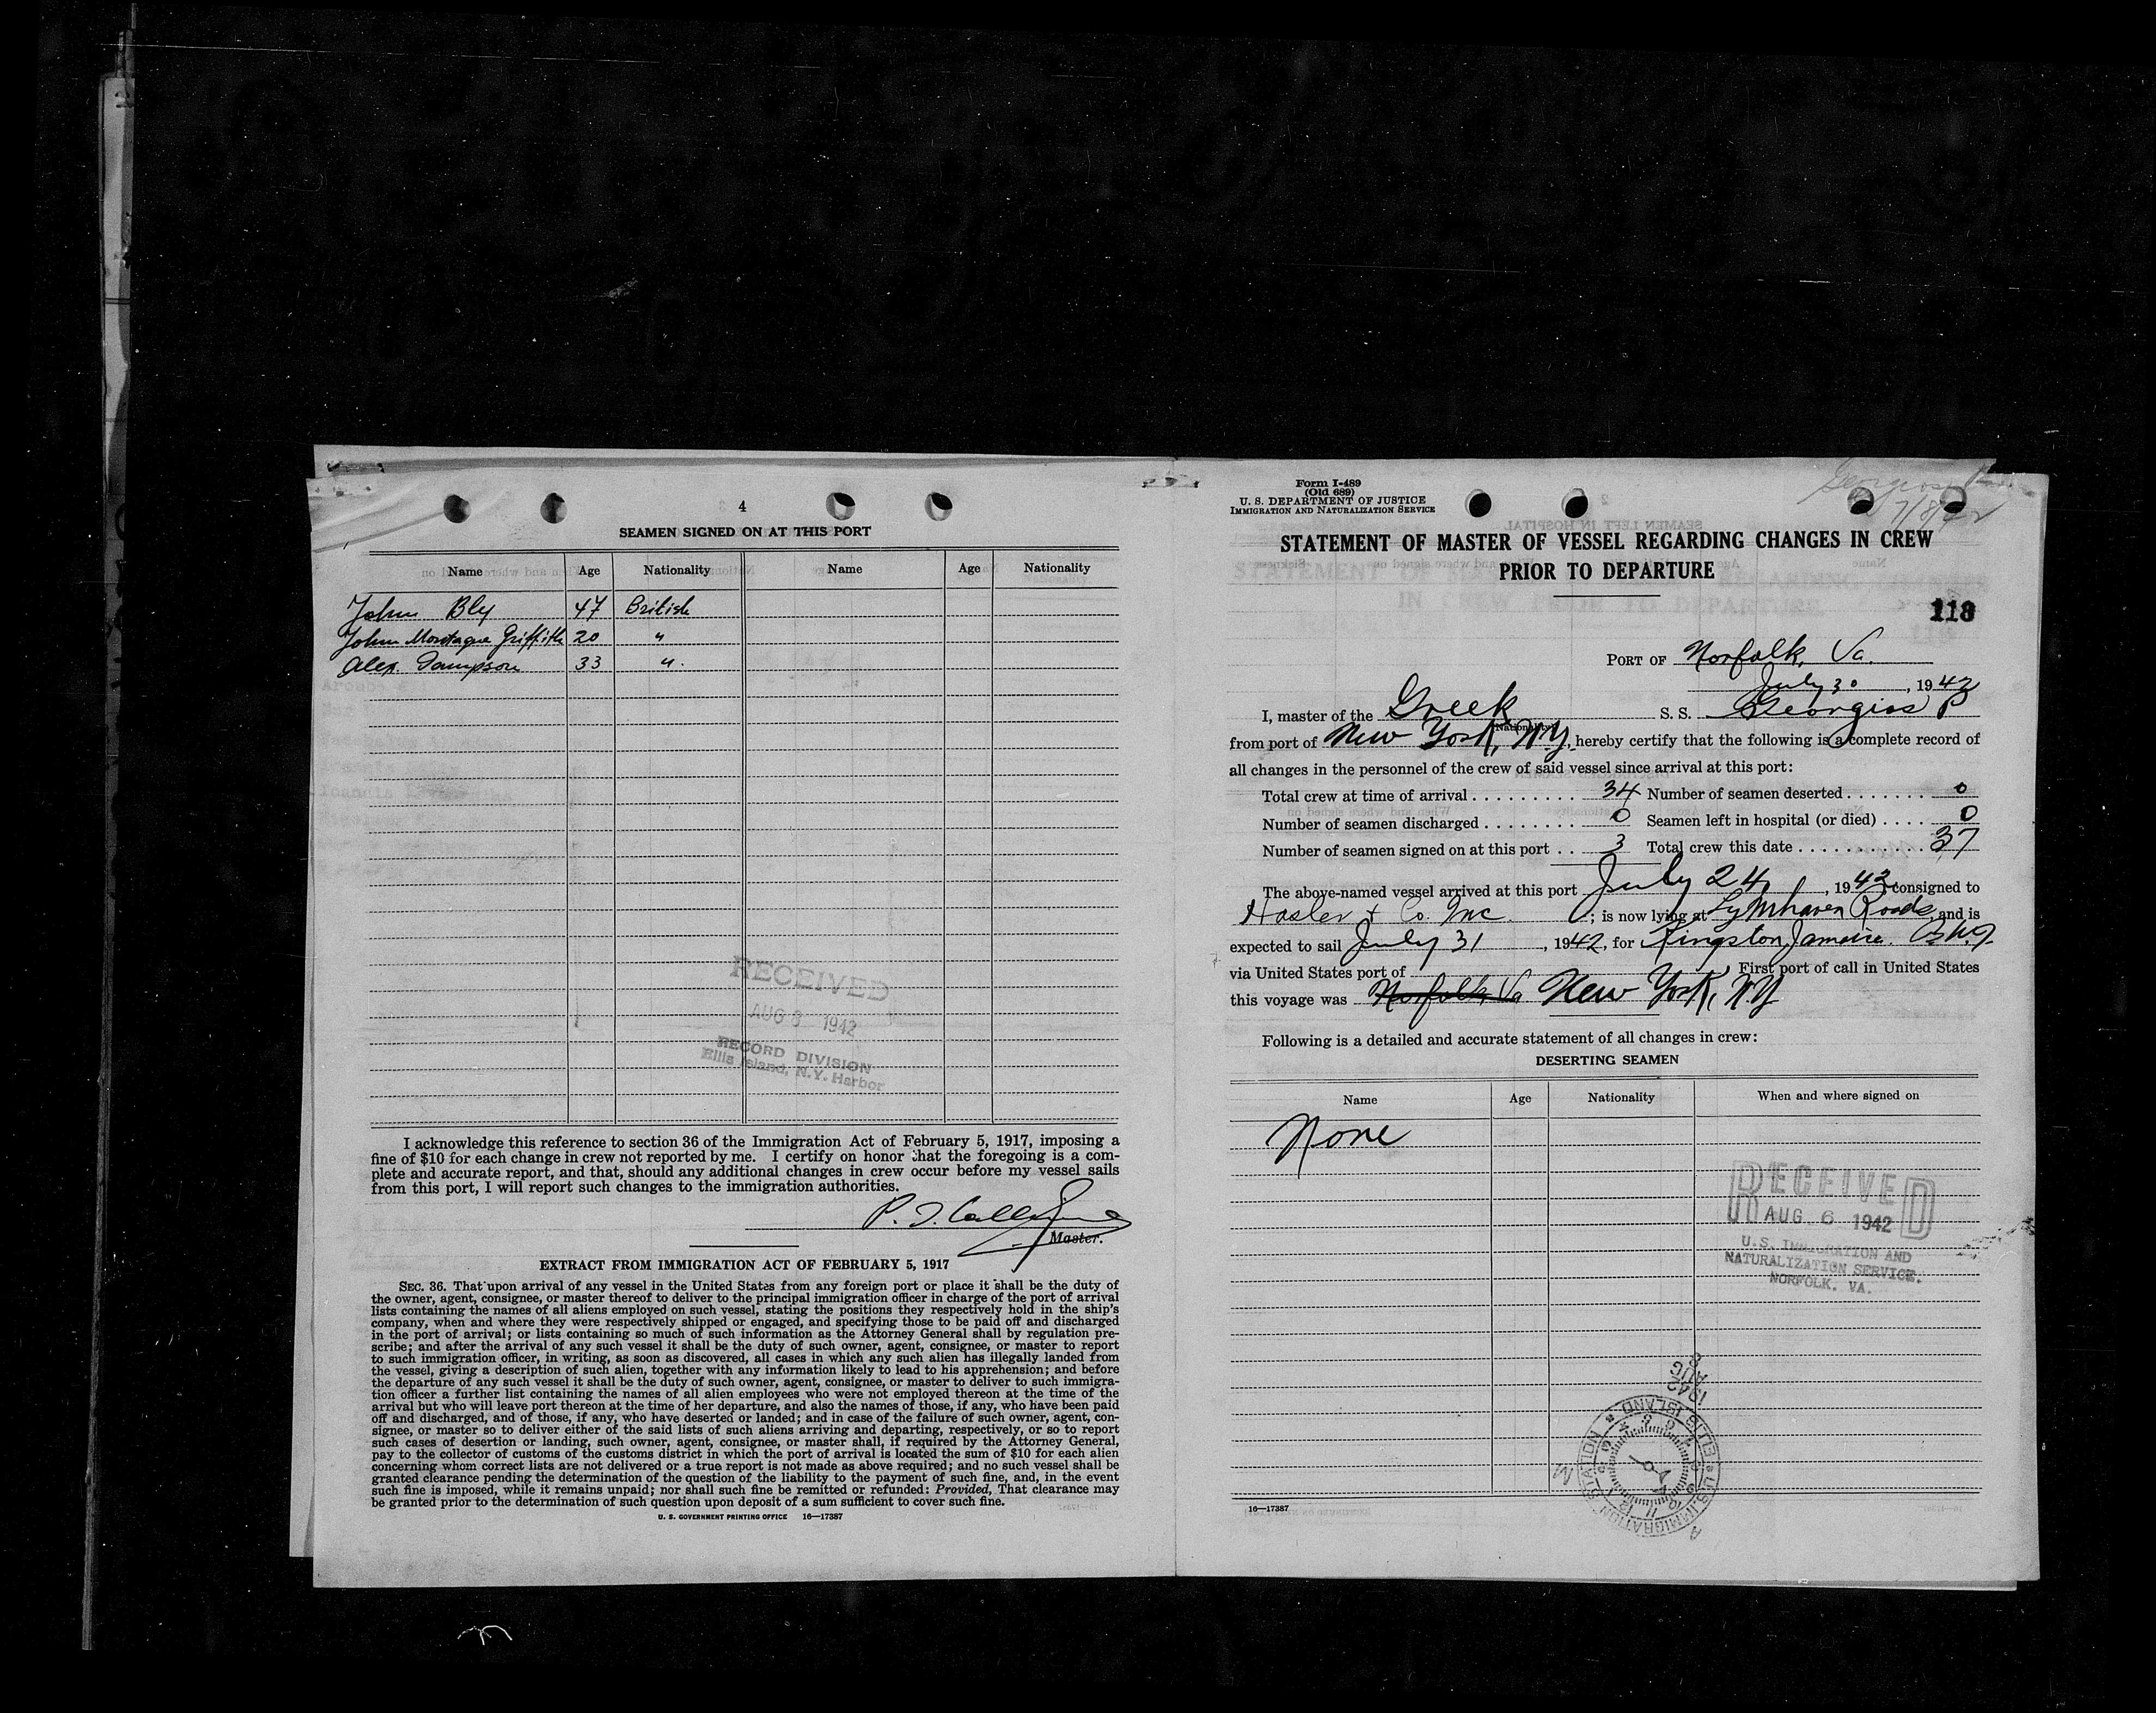 4
SEAMEN SIGNED ON AT THIS PORT
Name Age Nationality Name Age Nationality
John Bly 47 British
John Montague Griffith 20 "
Alex. Sampson 33 "
RECEIVED
AUG 8 1942
RECORD DIVISION
Ellis Island, N.Y. Harbor
I acknowledge this reference to section 36 of the Immigration Act of February 5, 1917, imposing a
fine of $10 for each change in crew not reported by me. I certify on honor that the foregoing is a com-
plete and accurate report, and that, should any additional changes in crew occur before my vessel sails
from this port, I will report such changes to the immigration authorities.
Master.
EXTRACT FROM IMMIGRATION ACT OF FEBRUARY 5, 1917
SEC. 36. That upon arrival of any vessel in the United States from any foreign port or place it shall be the duty of
the owner, agent, consignee, or master thereof to deliver to the principal immigration officer in charge of the port of arrival
lists containing the names of all aliens employed on such vessel, stating the positions they respectively hold in the ship's
company, when and where they were respectively shipped or engaged, and specifying those to be paid off and discharged
in the port of arrival; or lists containing so much of such information as the Attorney General shall by regulation pre-
scribe; and after the arrival of any such vessel it shall be the duty of such owner, agent, consignee, or master to report
to such immigration officer, in writing, as soon as discovered, all cases in which any such alien has illegally landed from
the vessel, giving a description of such alien, together with any information likely to lead to his apprehension; and before
the departure of any such vessel it shall be the duty of such owner, agent, consignee, or master to deliver to such immigra-
tion officer a further list containing the names of all alien employees who were not employed thereon at the time of the
arrival but who will leave port thereon at the time of her departure, and also the names of those, if any, who have been paid
off and discharged, and of those, if any, who have deserted or landed; and in case of the failure of such owner, agent, con-
signee, or master so to deliver either of the said lists of such aliens arriving and departing, respectively, or so to report
such cases of desertion or landing, such owner, agent, consignee, or master shall, if required by the Attorney General,
pay to the collector of customs of the customs district in which the port of arrival is located the sum of $10 for each alien
concerning whom correct lists are not delivered or a true report is not made as above required; and no such vessel shall be
granted clearance pending the determination of the question of the liability to the payment of such fine, and, in the event
such fine is imposed, while it remains unpaid; nor shall such fine be remitted or refunded: Provided, That clearance may
be granted prior to the determination of such question upon deposit of a sum sufficient to cover such fine.
U. S. GOVERNMENT PRINTING OFFICE 16—17387
Form I-489
(Old 689)
U. S. DEPARTMENT OF JUSTICE
IMMIGRATION AND NATURALIZATION SERVICE
7/8/42
STATEMENT OF MASTER OF VESSEL REGARDING CHANGES IN CREW
PRIOR TO DEPARTURE
118
PORT OF Norfolk, Va.
July 30, 1942
I, master of the Greek S. S. Georgios P
(Nationality)
from port of New York, NY, hereby certify that the following is a complete record of
all changes in the personnel of the crew of said vessel since arrival at this port:
Total crew at time of arrival . . . . . . . . . 34 Number of seamen deserted . . . . . . . . 0
Number of seamen discharged . . . . . . . . 0 Seamen left in hospital (or died) . . . . 0
Number of seamen signed on at this port . . 3 Total crew this date . . . . . . . . . . . 37
The above-named vessel arrived at this port July 24, 1942 consigned to
Hasler + Co. Inc. ; is now lying at Lynnhaven Roads, and is
expected to sail July 31, 1942, for Kingston, Jamaica. B.W.I.
via United States port of First port of call in United States
this voyage was Norfolk Va New York, N.Y
Following is a detailed and accurate statement of all changes in crew:
DESERTING SEAMEN
Name Age Nationality When and where signed on
None
RECEIVED
AUG 6 1942
U.S. IMMIGRATION AND
NATURALIZATION SERVICE.
NORFOLK, VA.
AUG 8
1942
U.S. IMMIGRATION STATION ELLIS ISLAND
16—17387